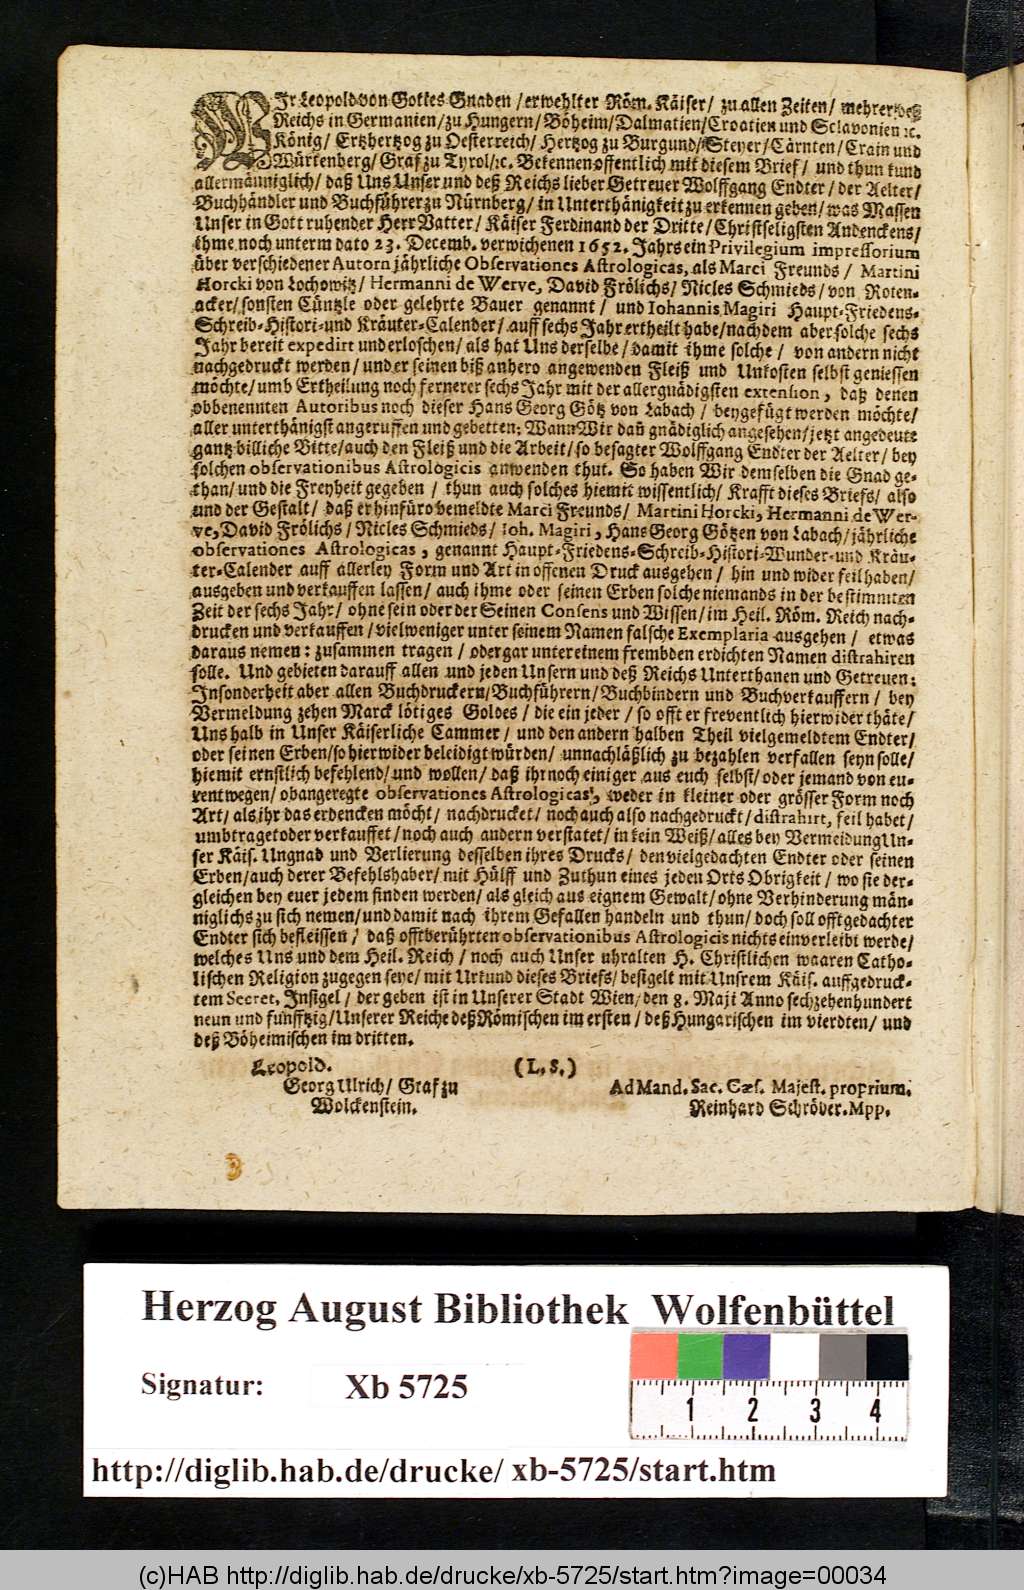 WIr Leopold von Gottes Gnaden / erwehlter Röm. Käiser / zu allen Zeiten / mehrer deß
Reichs in Germanien / zu Hungern / Böheim / Dalmatien / Croatien und Sclavonien ꝛc.
König / Ertzhertzog zu Oesterreich / Hertzog zu Burgund / Steyer / Cärnten / Crain und
Würtenberg / Graf zu Tyrol / ꝛc. Bekennen offentlich mit diesem Brief / und thun kund
allermänniglich / daß Uns Unser und deß Reichs lieber Getreuer Wolffgang Endter / der Aelter /
Buchhändler und Buchführer zu Nürnberg / in Unterthänigkeit zu erkennen geben / was Massen
Unser in Gott ruhender Herr Vatter / Käiser Ferdinand der Dritte / Christseligsten Andenckens /
ihme noch unterm dato 23. Decemb. verwichenen 1652. Jahrs ein Privilegium impressorium
über verschiedener Autorn jährliche Observationes Astrologicas, als Marci Freunds / Martini
Horcki von Lochowitz / Hermanni de Werve, David Frölichs / Nicles Schmieds / von Roten-
acker / sonsten Cüntzle oder gelehrte Bauer genannt / und Iohannis Magiri Haupt-Friedens-
Schreib-Histori-und Kräuter-Calender / auff sechs Jahr ertheilt habe / nachdem aber solche sechs
Jahr bereit expedirt und erloschen / als hat Uns derselbe / damit ihme solche / von andern nicht
nachgedruckt werden / und er seinen biß anhero angewenden Fleiß und Unkosten selbst geniessen
möchte / umb Ertheilung noch fernerer sechs Jahr mit der allergnädigsten extension, daß denen
obbenennten Autoribus noch dieser Hans Georg Götz von Labach / beygefügt werden möchte /
aller unterthänigst angeruffen und gebetten; Wann Wir dañ gnädiglich angesehen / jetzt angedeute
gantz billiche Bitte / auch den Fleiß und die Arbeit / so besagter Wolffgang Endter der Aelter / bey
solchen observationibus Astrologicis anwenden thut. So haben Wir demselben die Gnad ge-
than / und die Freyheit gegeben / thun auch solches hiemit wissentlich / Krafft dieses Briefs / also
und der Gestalt / daß er hinfüro bemeldte Marci Freunds / Martini Horcki, Hermanni de Wer-
ve, David Frölichs / Nicles Schmieds / Ioh. Magiri, Hans Georg Götzen von Labach / jährliche
observationes Astrologicas, genannt Haupt-Friedens-Schreib-Histori-Wunder-und Kräu-
ter-Calender auff allerley Form und Art in offenen Druck ausgehen / hin und wider feil haben /
ausgeben und verkauffen lassen / auch ihme oder seinen Erben solche niemands in der bestimmten
Zeit der sechs Jahr / ohne sein oder der Seinen Consens und Wissen / im Heil. Röm. Reich nach-
drucken und verkauffen / vielweniger unter seinem Namen falsche Exemplaria ausgehen / etwas
daraus nemen: zusammen tragen / oder gar unter einem frembden erdichten Namen distrahiren
solle. Und gebieten darauff allen und jeden Unsern und deß Reichs Unterthanen und Getreuen;
Insonderheit aber allen Buchdruckern / Buchführern / Buchbindern und Buchverkauffern / bey
Vermeldung zehen Marck lötiges Goldes / die ein jeder / so offt er freventlich hierwider thäte /
Uns halb in Unser Käiserliche Cammer / und den andern halben Theil vielgemeldtem Endter /
oder seinen Erben / so hierwider beleidigt würden / unnachläßlich zu bezahlen verfallen seyn solle /
hiemit ernstlich befehlend / und wollen / daß ihr noch einiger aus euch selbst / oder jemand von eu-
rentwegen / obangeregte observationes Astrologicas, weder in kleiner oder grösser Form noch
Art / als ihr das erdencken möcht / nachdrucket / noch auch also nachgedruckt / distrahirt, feil habet /
umbtraget oder verkauffet / noch auch andern verstatet / in kein Weiß / alles bey Vermeidung Un-
ser Käis. Ungnad und Verlierung desselben ihres Drucks / den vielgedachten Endter oder seinen
Erben / auch derer Befehlshaber / mit Hülff und Zuthun eines jeden Orts Obrigkeit / wo sie der-
gleichen bey euer jedem finden werden / als gleich aus eignem Gewalt / ohne Verhinderung män-
niglichs zu sich nemen / und damit nach ihrem Gefallen handeln und thun / doch soll offtgedachter
Endter sich befleissen / daß offtberührten observationibus Astrologicis nichts einverleibt werde /
welches Uns und dem Heil. Reich / noch auch Unser uhralten H. Christlichen waaren Catho-
lischen Religion zugegen seye / mit Urkund dieses Briefs / besigelt mit Unsrem Käis. auffgedruck-
tem Secret, Insigel / der geben ist in Unserer Stadt Wien / den 8. Maji Anno sechzehenhundert
neun und funfftzig / Unserer Reiche deß Römischen im ersten / deß Hungarischen im vierdten / und
deß Böheimischen im dritten.
Leopold.
(L. S.)
Georg Ulrich / Graf zu
Wolckenstein.
Ad Mand. Sac. Cæs. Majest. proprium.
Reinhard Schröder. Mpp.
Herzog August Bibliothek Wolfenbüttel
Signatur: Xb 5725
1 2 3 4
http://diglib.hab.de/drucke/ xb-5725/start.htm
(c)HAB http://diglib.hab.de/drucke/xb-5725/start.htm?image=00034